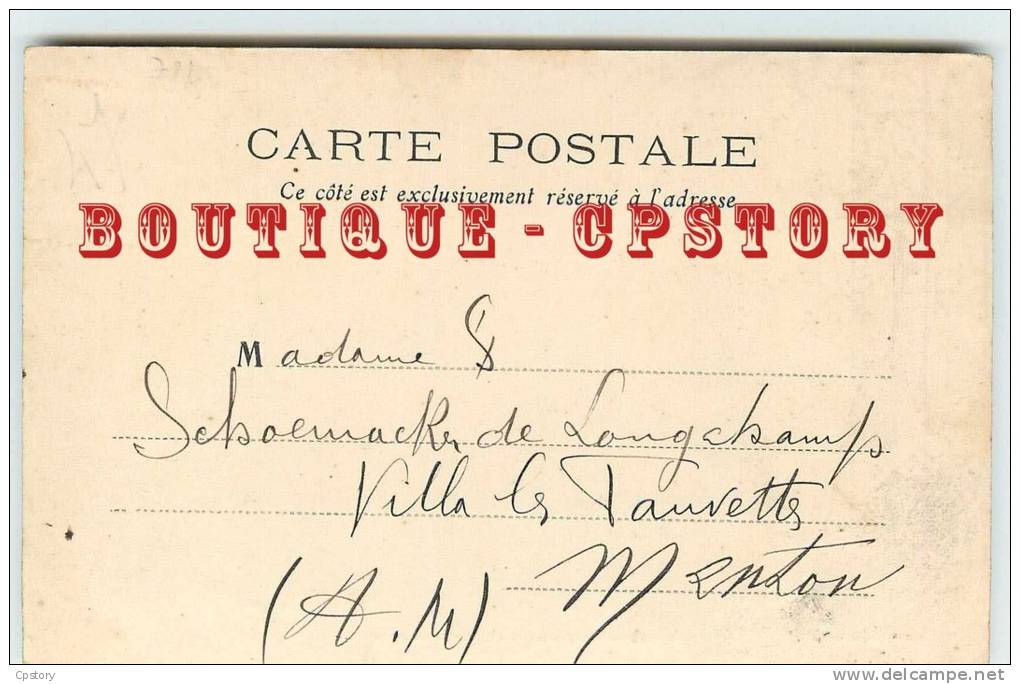 CARTE POSTALE
Ce côté est exclusivement réservé à l'adresse
BOUTIQUE - CPSTORY
Madame
Schoemacker de Longchamps
Villa les Fauvettes
Menton
(A.M)
Cpstory
http://cpstory.delcampe.net